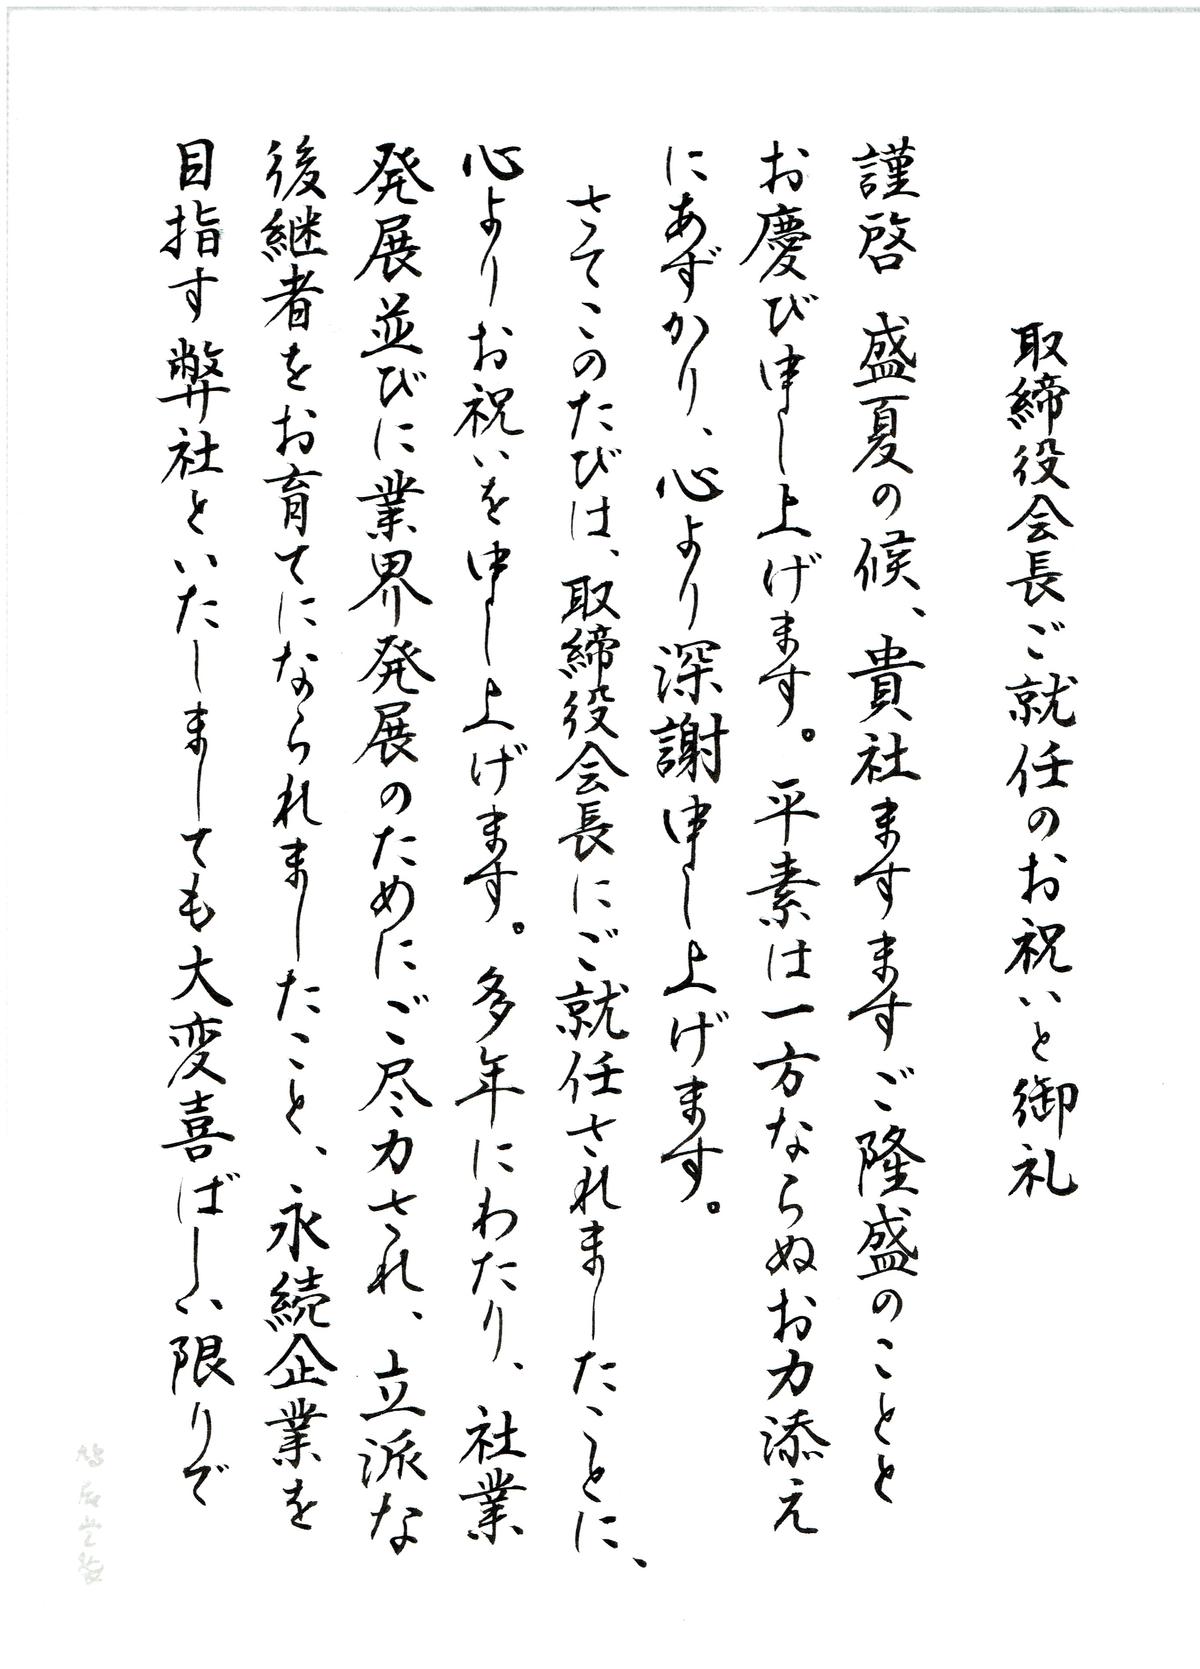 取締役会長ご就任のお祝いと御礼
謹啓 盛夏の候、貴社ますますご隆盛のことと
お慶び申し上げます。平素は一方ならぬお力添え
にあずかり、心より深謝申し上げます。
さてこのたびは、取締役会長にご就任されましたことに、
心よりお祝いを申し上げます。多年にわたり、社業
発展並びに業界発展のためにご尽力され、立派な
後継者をお育てになられましたこと、永続企業を
目指す弊社といたしましても大変喜ばしい限りで